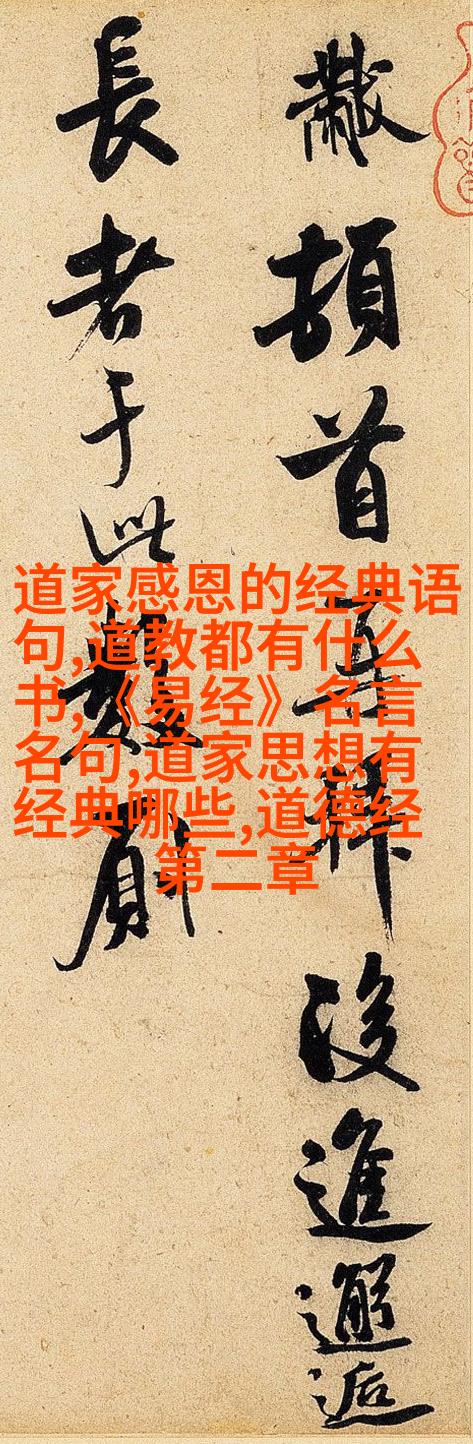 黻頓首再拜後進邂逅
長者于此數厠
道家感恩的经典语
句,道教都有什么
书,《易经》名言
名句,道家思想有
经典哪些,道德经
第二章